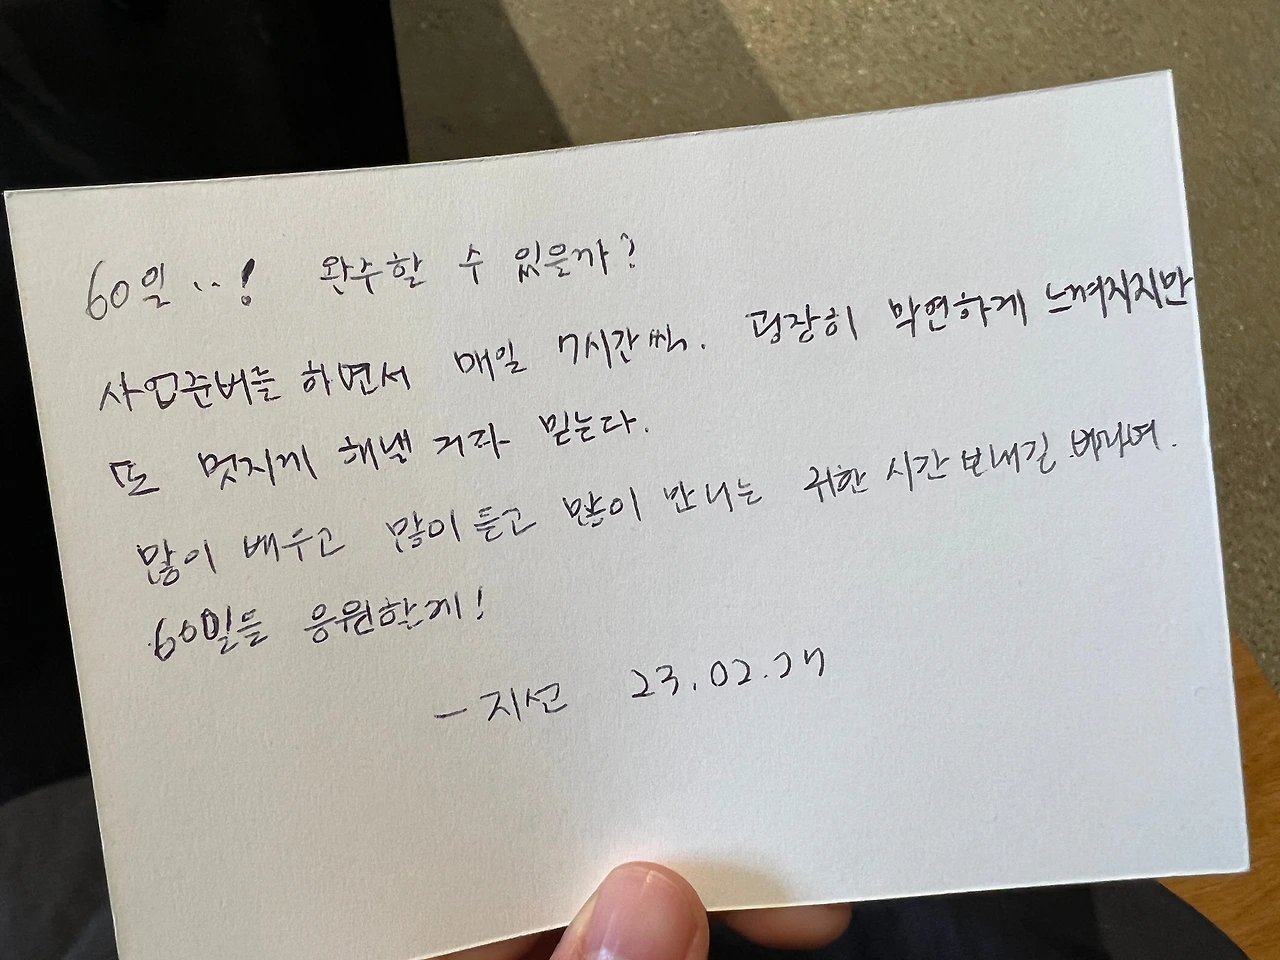 60일..! 완주할 수 있을까?
사업준비를 하면서 매일 7시간씩. 굉장히 막연하게 느껴지지만
또 멋지게 해낼 거라 믿는다.
많이 배우고 많이 듣고 많이 만나는 귀한 시간 보내길 바라며.
60일을 응원할게!
- 지선 23.02.27